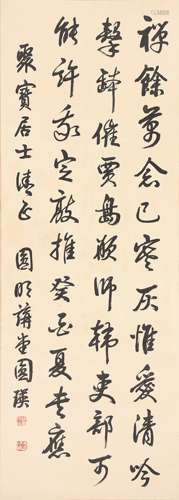 禪餘萬念已寒灰惟愛清吟
擊鉢催賈島願師韓吏部可
能許我定敲推癸亥夏去應
聚寶居士清正 圓明講堂圓瑛